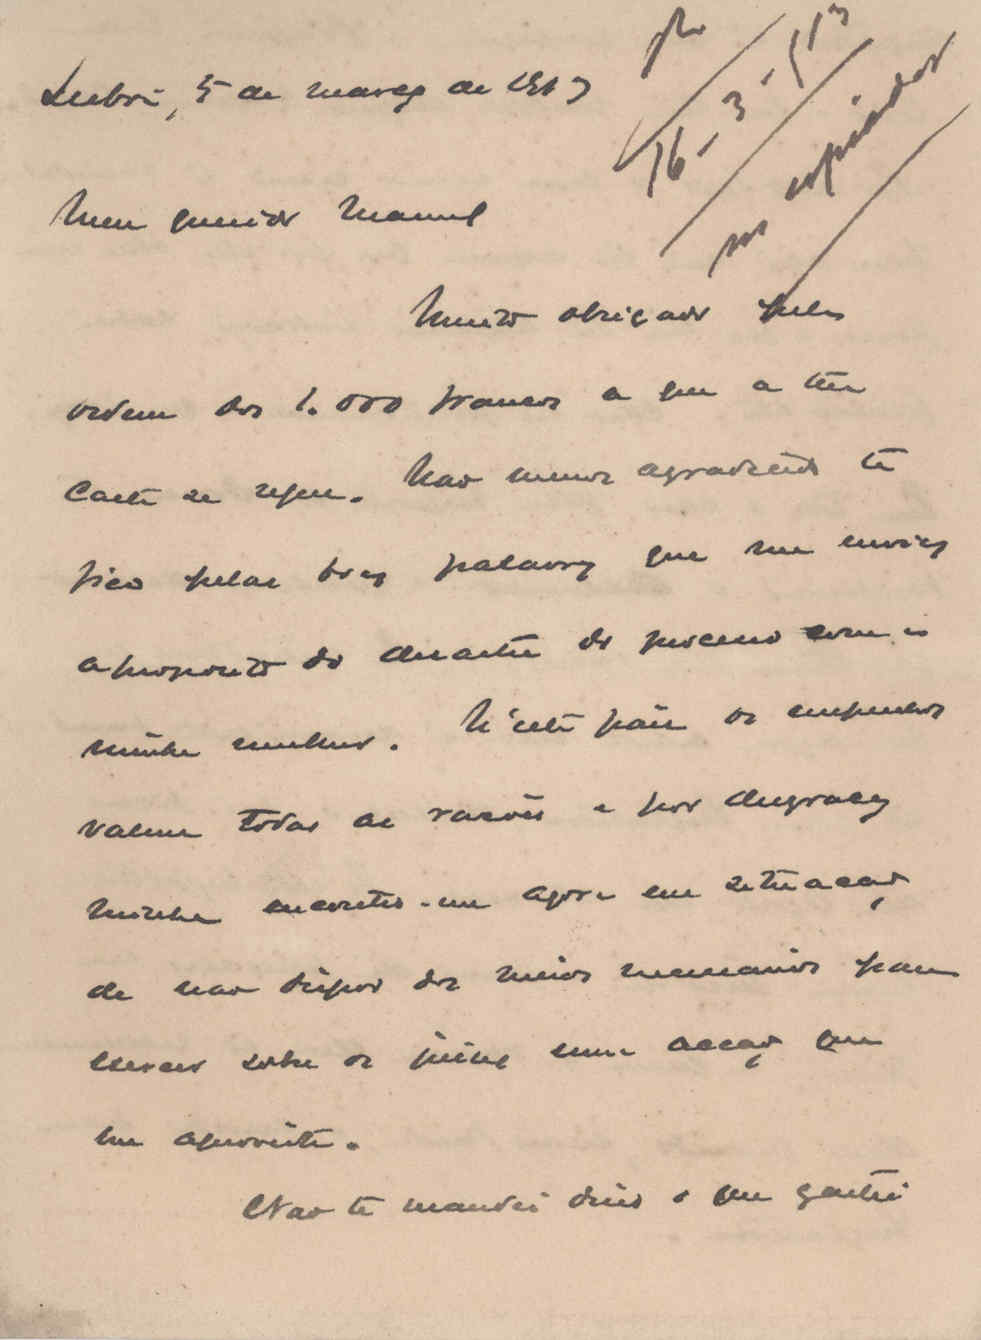 5 de março de 1913
16-3-113
no copiador
Meu querido Manuel
Muito obrigado pela
ordem dos 1.000 francos a que a tua
carta se refere. Não menos agradecido te
fico pelas boas palavras que me envias
a proposito do desastre do processo com a
minha mulher. N'este paiz os empenhos
valem todas as razões e por desgraça
minha encontro-me agora em situação
de não dispor dos meios necessarios para
exercer sobre os juizes uma acção que
me aproveite.
Não te mandei dizer o que gastei